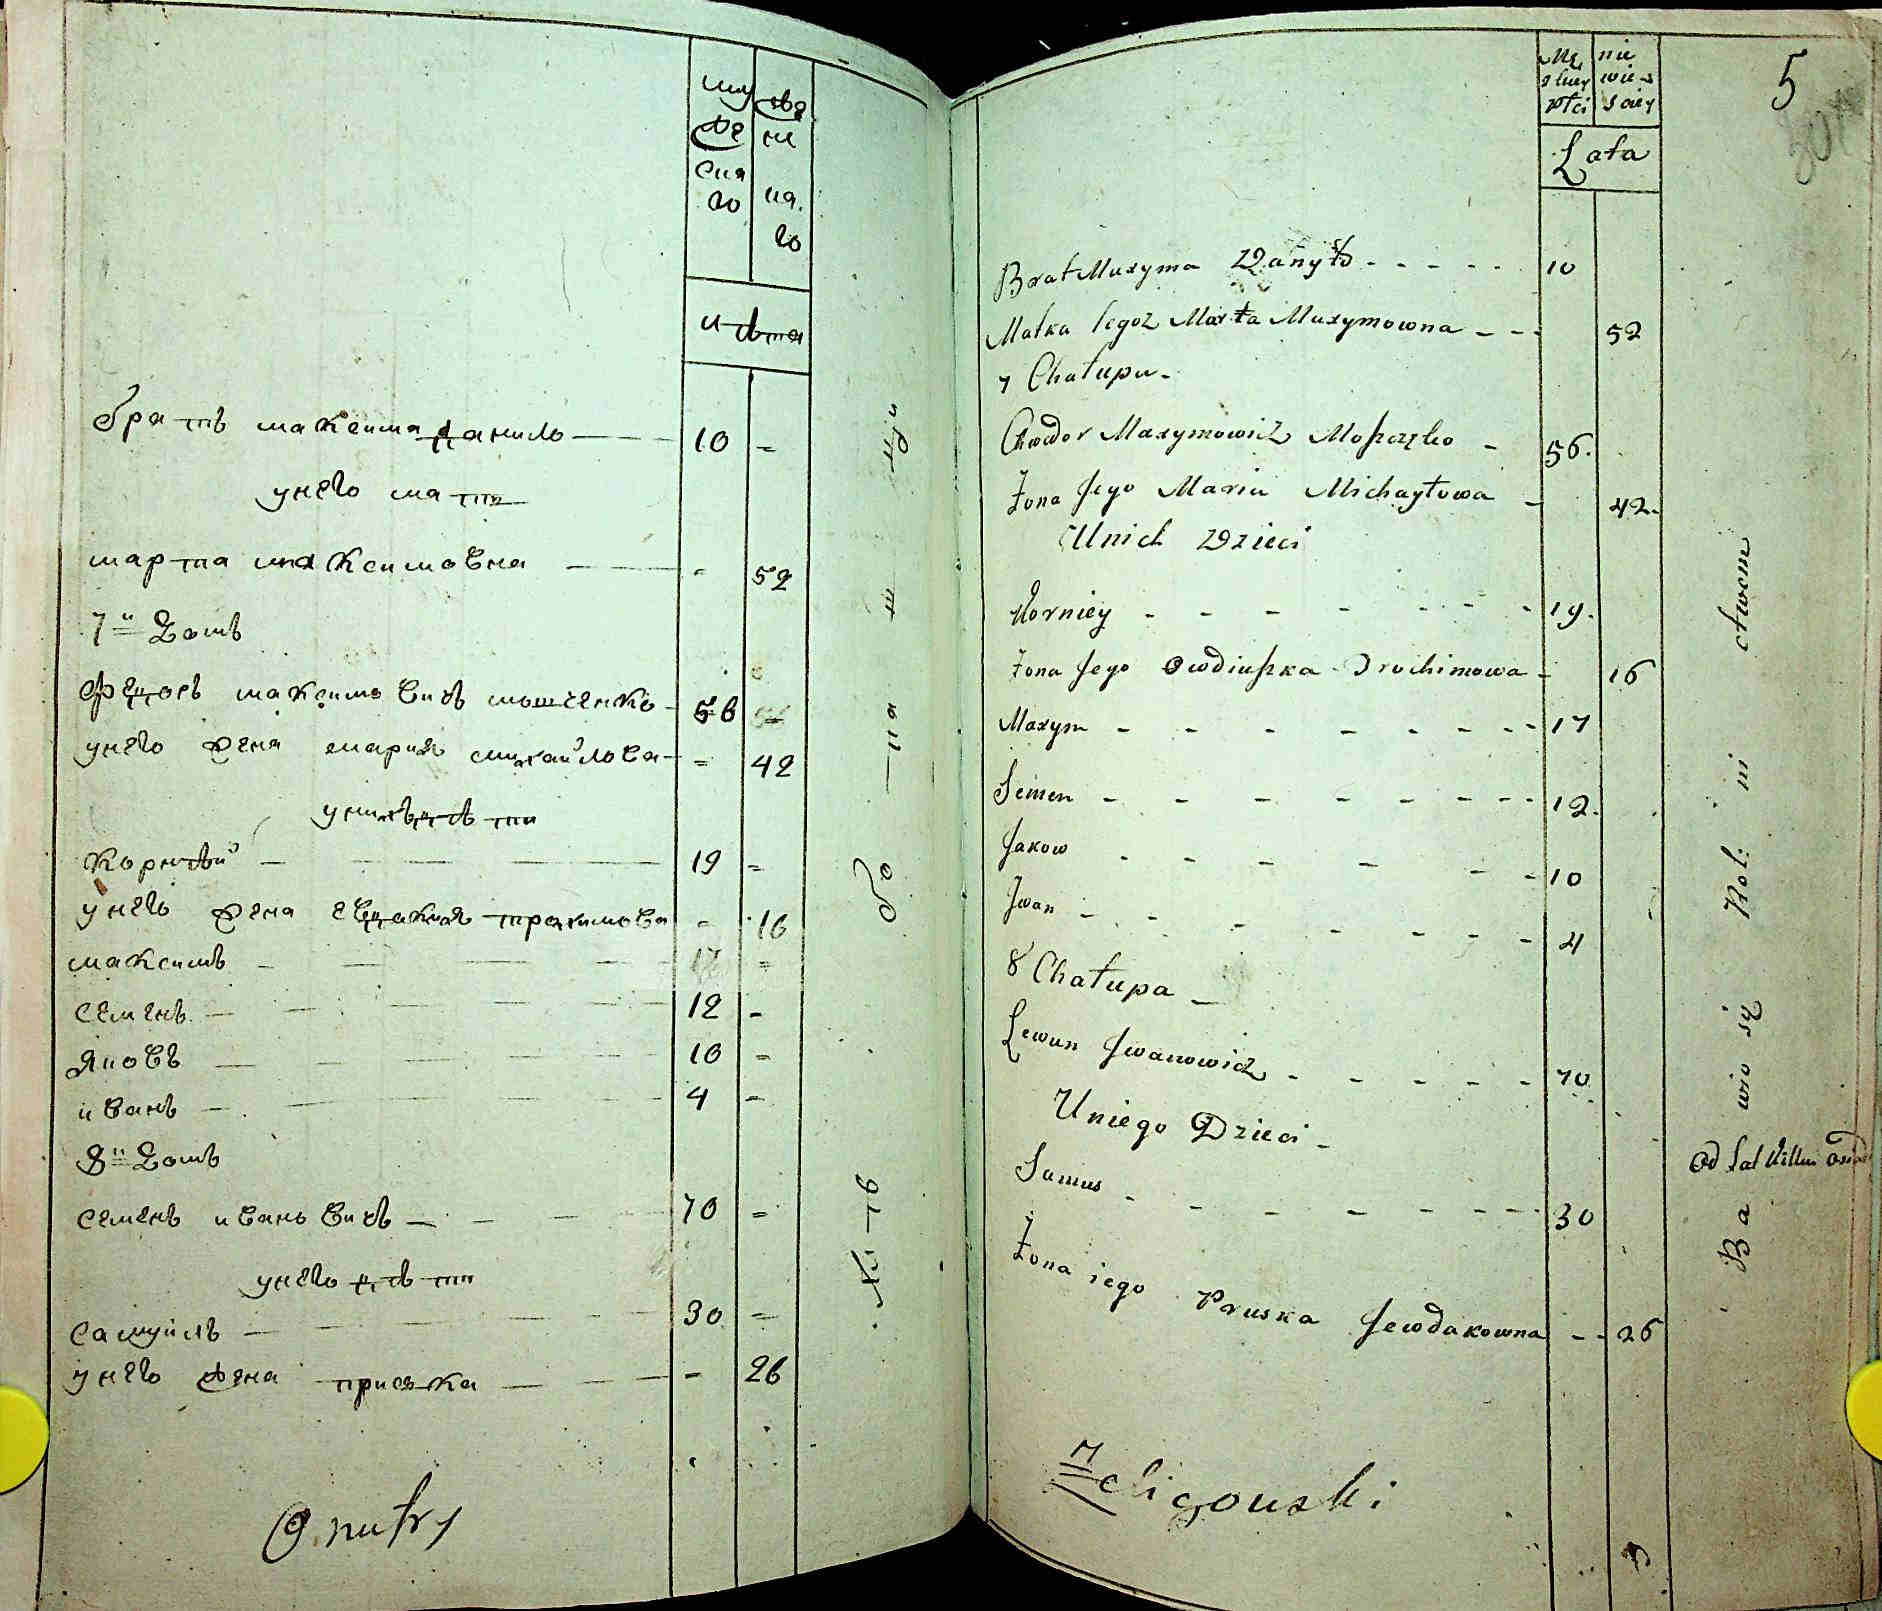 му же
же ни
ска на.
го го
лѣта
братъ максима данило 10 =
унего мати
марта максимовна = 52
7й Домъ
федоръ максимовичъ мошченко 56
унего жена мария михайлова = 42
унихъ дѣти
корнѣй 19 =
унего жена евдакия трахимова = 16
максимъ 17 =
семенъ 12 =
яковъ 10 =
иванъ 4 =
8й Домъ
семенъ ивановичъ 70 =
унего дѣти
самуйлъ 30 =
унего женаприська = 26
5
Lata
Brat Maxyma Danyło 10
Matka tegoż Marta Maxymowna 52
7 Chałupa
Chwedor Maxymowicz Moszczęko 56.
Żona Jego Maria Michayłowa 42.
Unich Dzieci
Korniey 19.
Żona Jego Owdiuszka Trochimowa 16
Maxym 17
Semen 12.
Jakow 10
Iwan 4
8 Chałupa
Lewun Iwanowicz 70
Uniego Dzieci
Samus 30
Żona iego Pruska Jewdakowna 26
Ba wio się Rol: ni ctwem
Od lat kilku